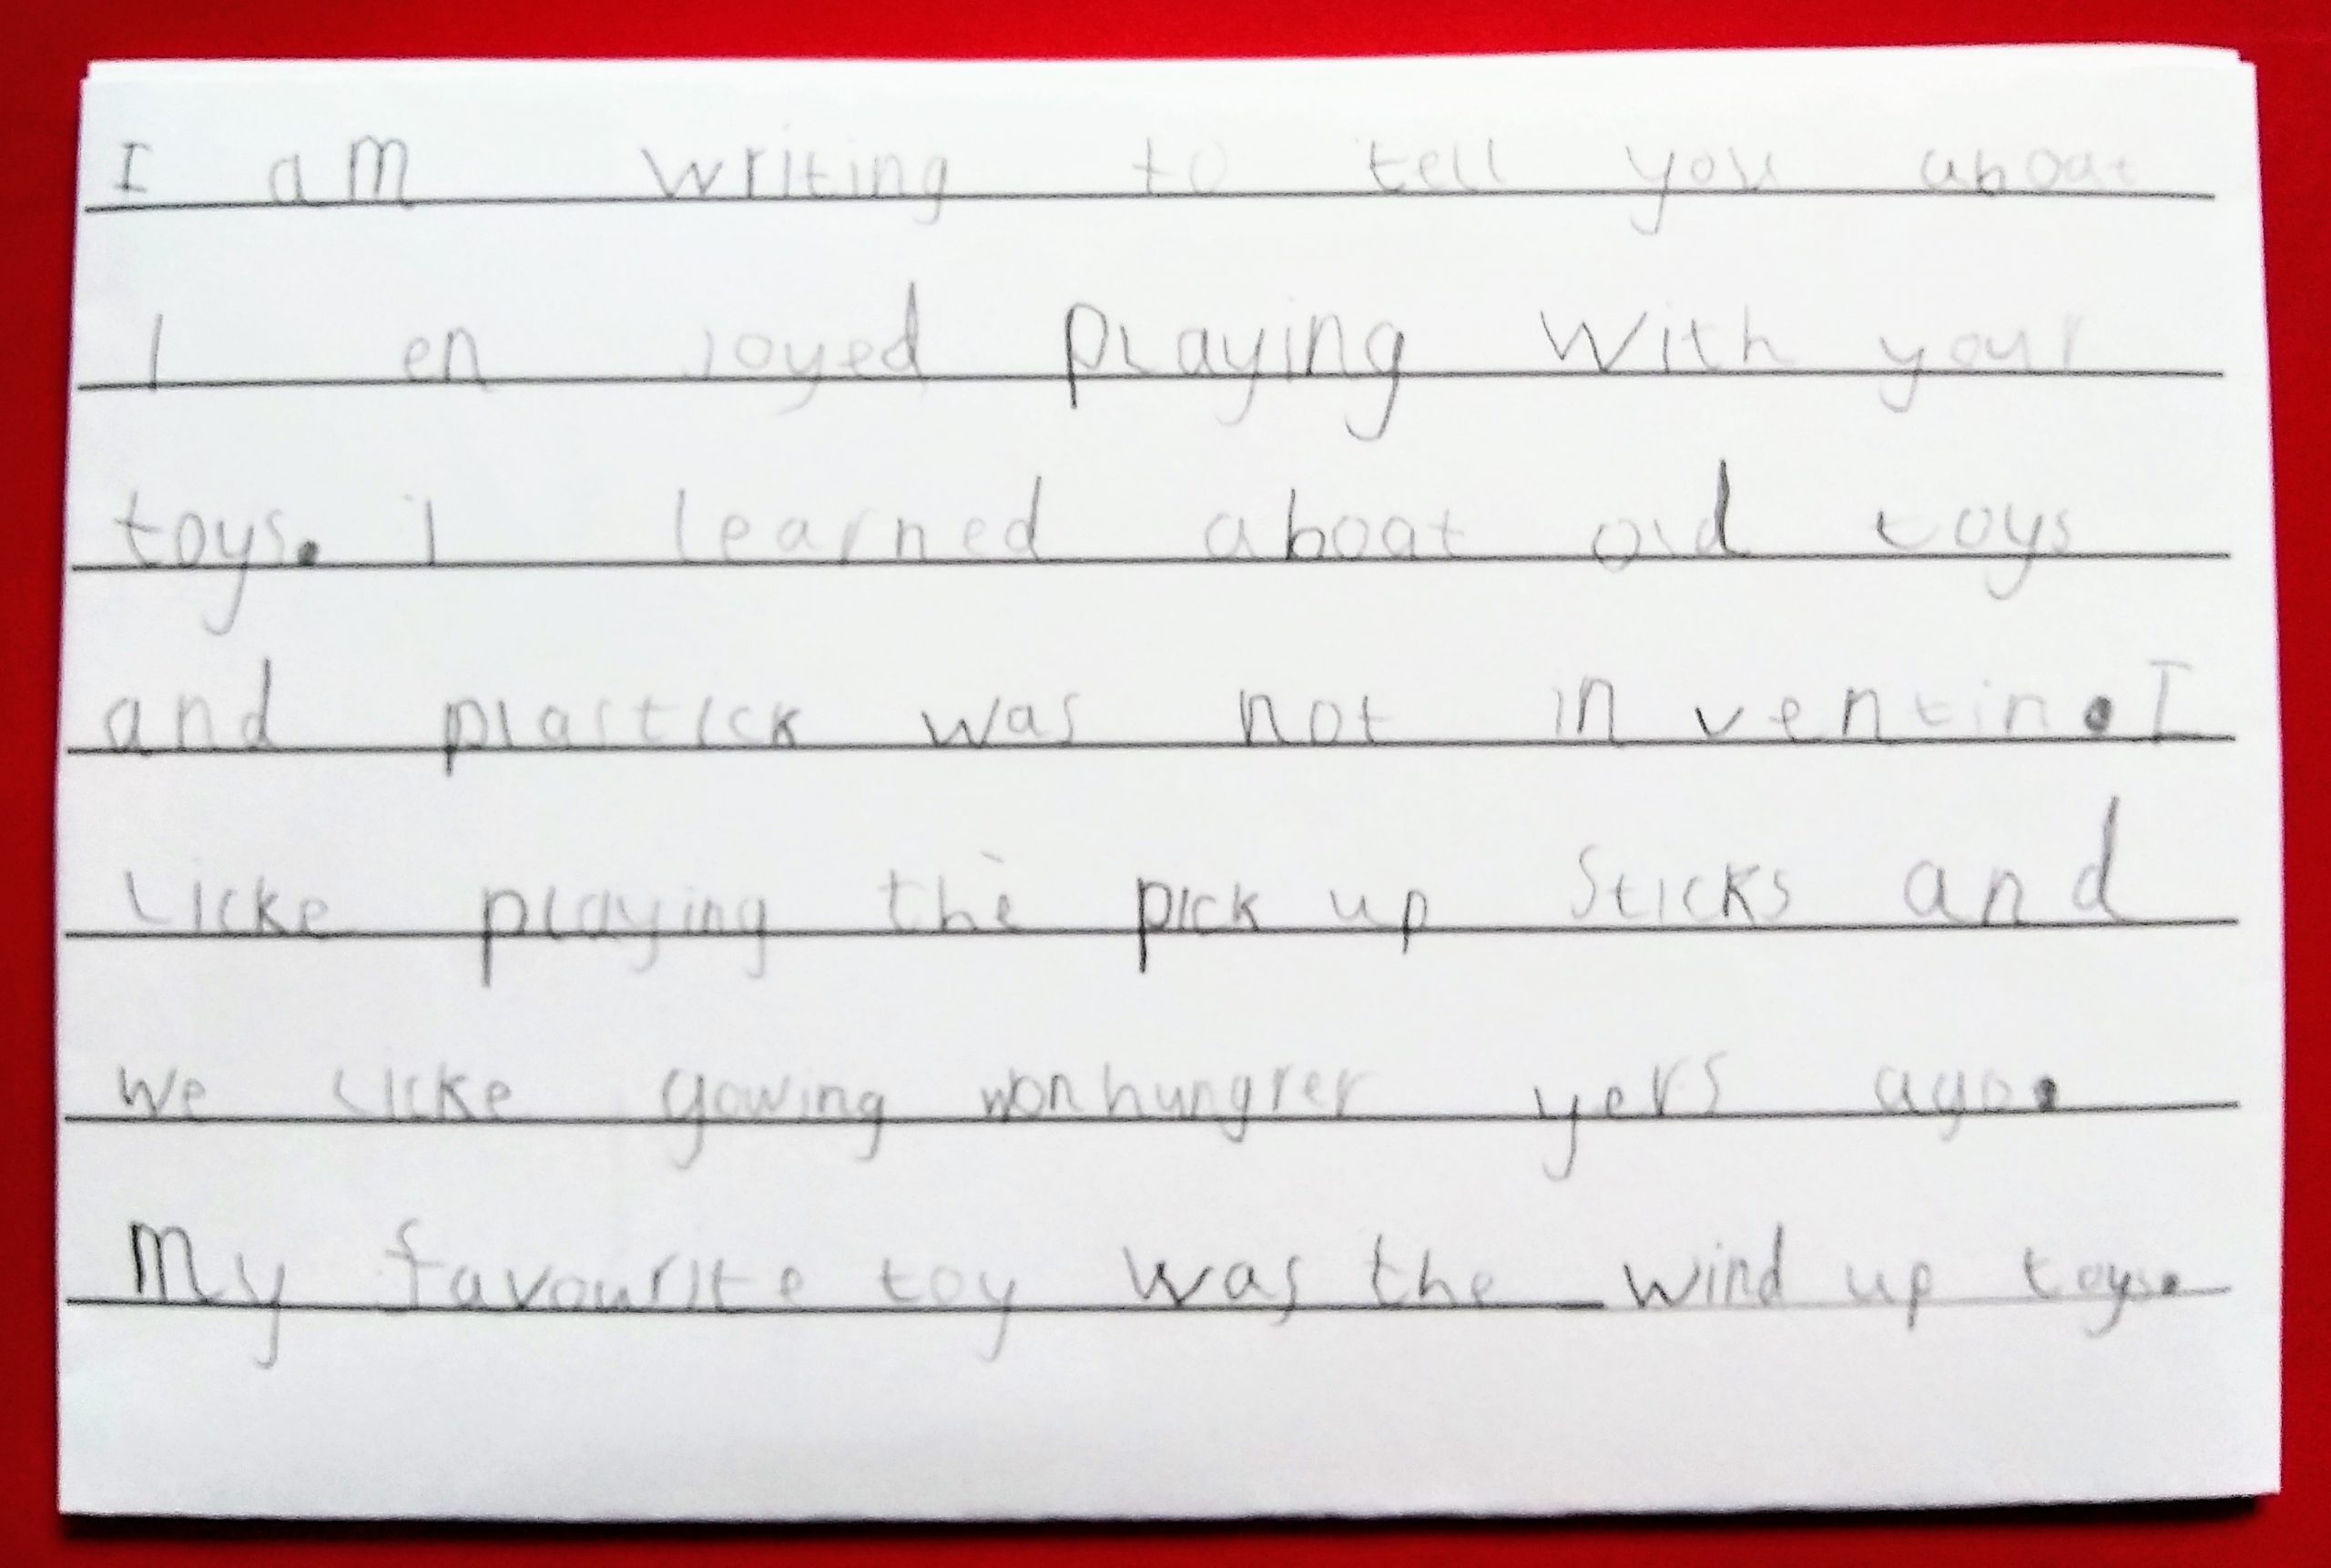 I am writing to tell you aboat
I en joyed playing with your
toys. i learned aboat old toys
and plastick was not in ventin. I
licke playing the pick up sticks and
we licke gowing wonhungrer yers ago.
My favourite toy was the wind up toys.